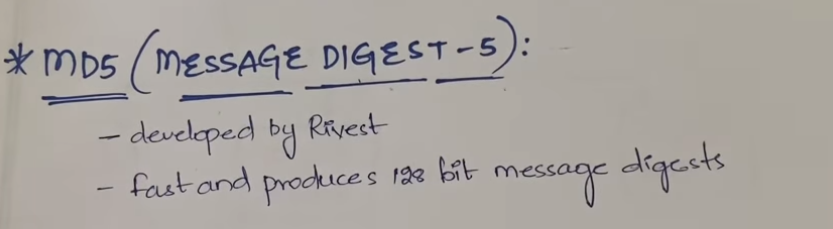 * MD5 (MESSAGE DIGEST-5):
- developed by Rivest
- fast and produces 128 bit message digests